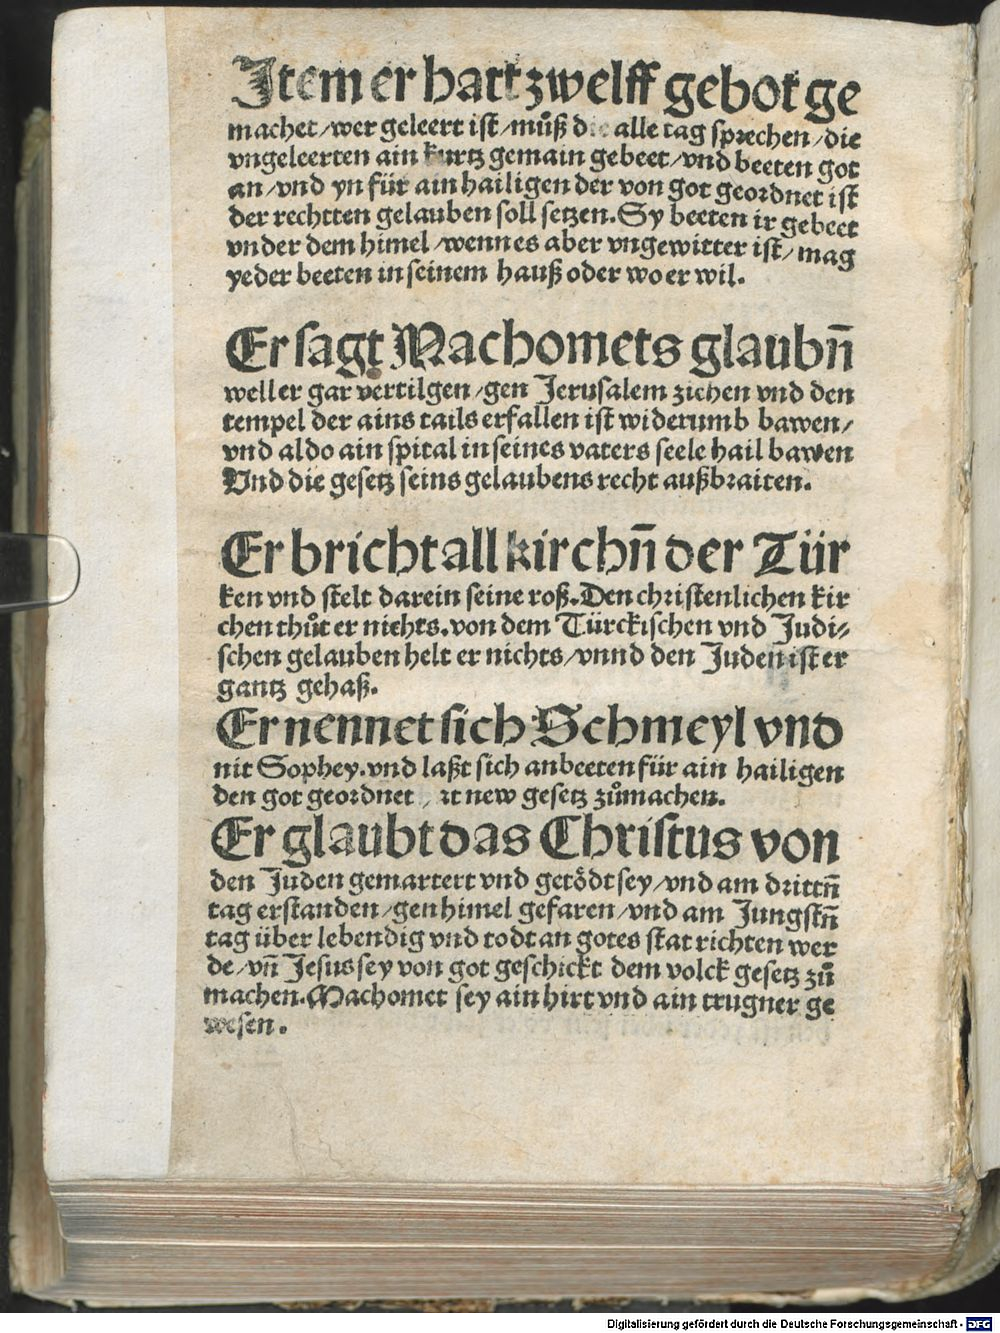 Item er hatt zwelff gebot ge
machet/wer geleert ist/můß die alle tag sprechen/die
vngeleerten ain kurtz gemain gebeet/vnd beeten got
an/vnd yn für ain hailigen der von got geordnet ist
der rechtten gelauben soll setzen. Sy beeten ir gebeet
vnder dem himel/wenn es aber vngewitter ist/mag
yeder beeten in seinem hauß oder wo er wil.
Er sagt Machomets glaubn̄
well er gar vertilgen/gen Jerusalem ziehen vnd den
tempel der ains tails erfallen ist widerumb bawen/
vnd aldo ain spital in seines vaters seele hail bawen
Vnd die gesetz seins gelaubens recht außbraiten.
Er bricht all kirchn̄ der Tür
ken vnd stelt darein seine roß. Den christenlichen kir
chen thůt er nichts. von dem Türckischen vnd Judi⸗
schen gelauben helt er nichts/vnnd den Juden ist er
gantz gehaß.
Er nennet sich Schmeyl vnd
nit Sophey. vnd laßt sich anbeeten für ain hailigen
den got geordnet new gesetz zůmachen.
Er glaubt das Christus von
den Juden gemartert vnd getödt sey/vnd am drittn̄
tag erstanden/gen himel gefaren/vnd am Jungstn̄
tag über lebendig vnd todt an gotes stat richten wer
de/vn̄ Jesus sey von got geschickt dem volck gesetz zů
machen. Machomet sey ain hirt vnd ain trugner ge
wesen.
Digitalisierung gefördert durch die Deutsche Forschungsgemeinschaft - DFG